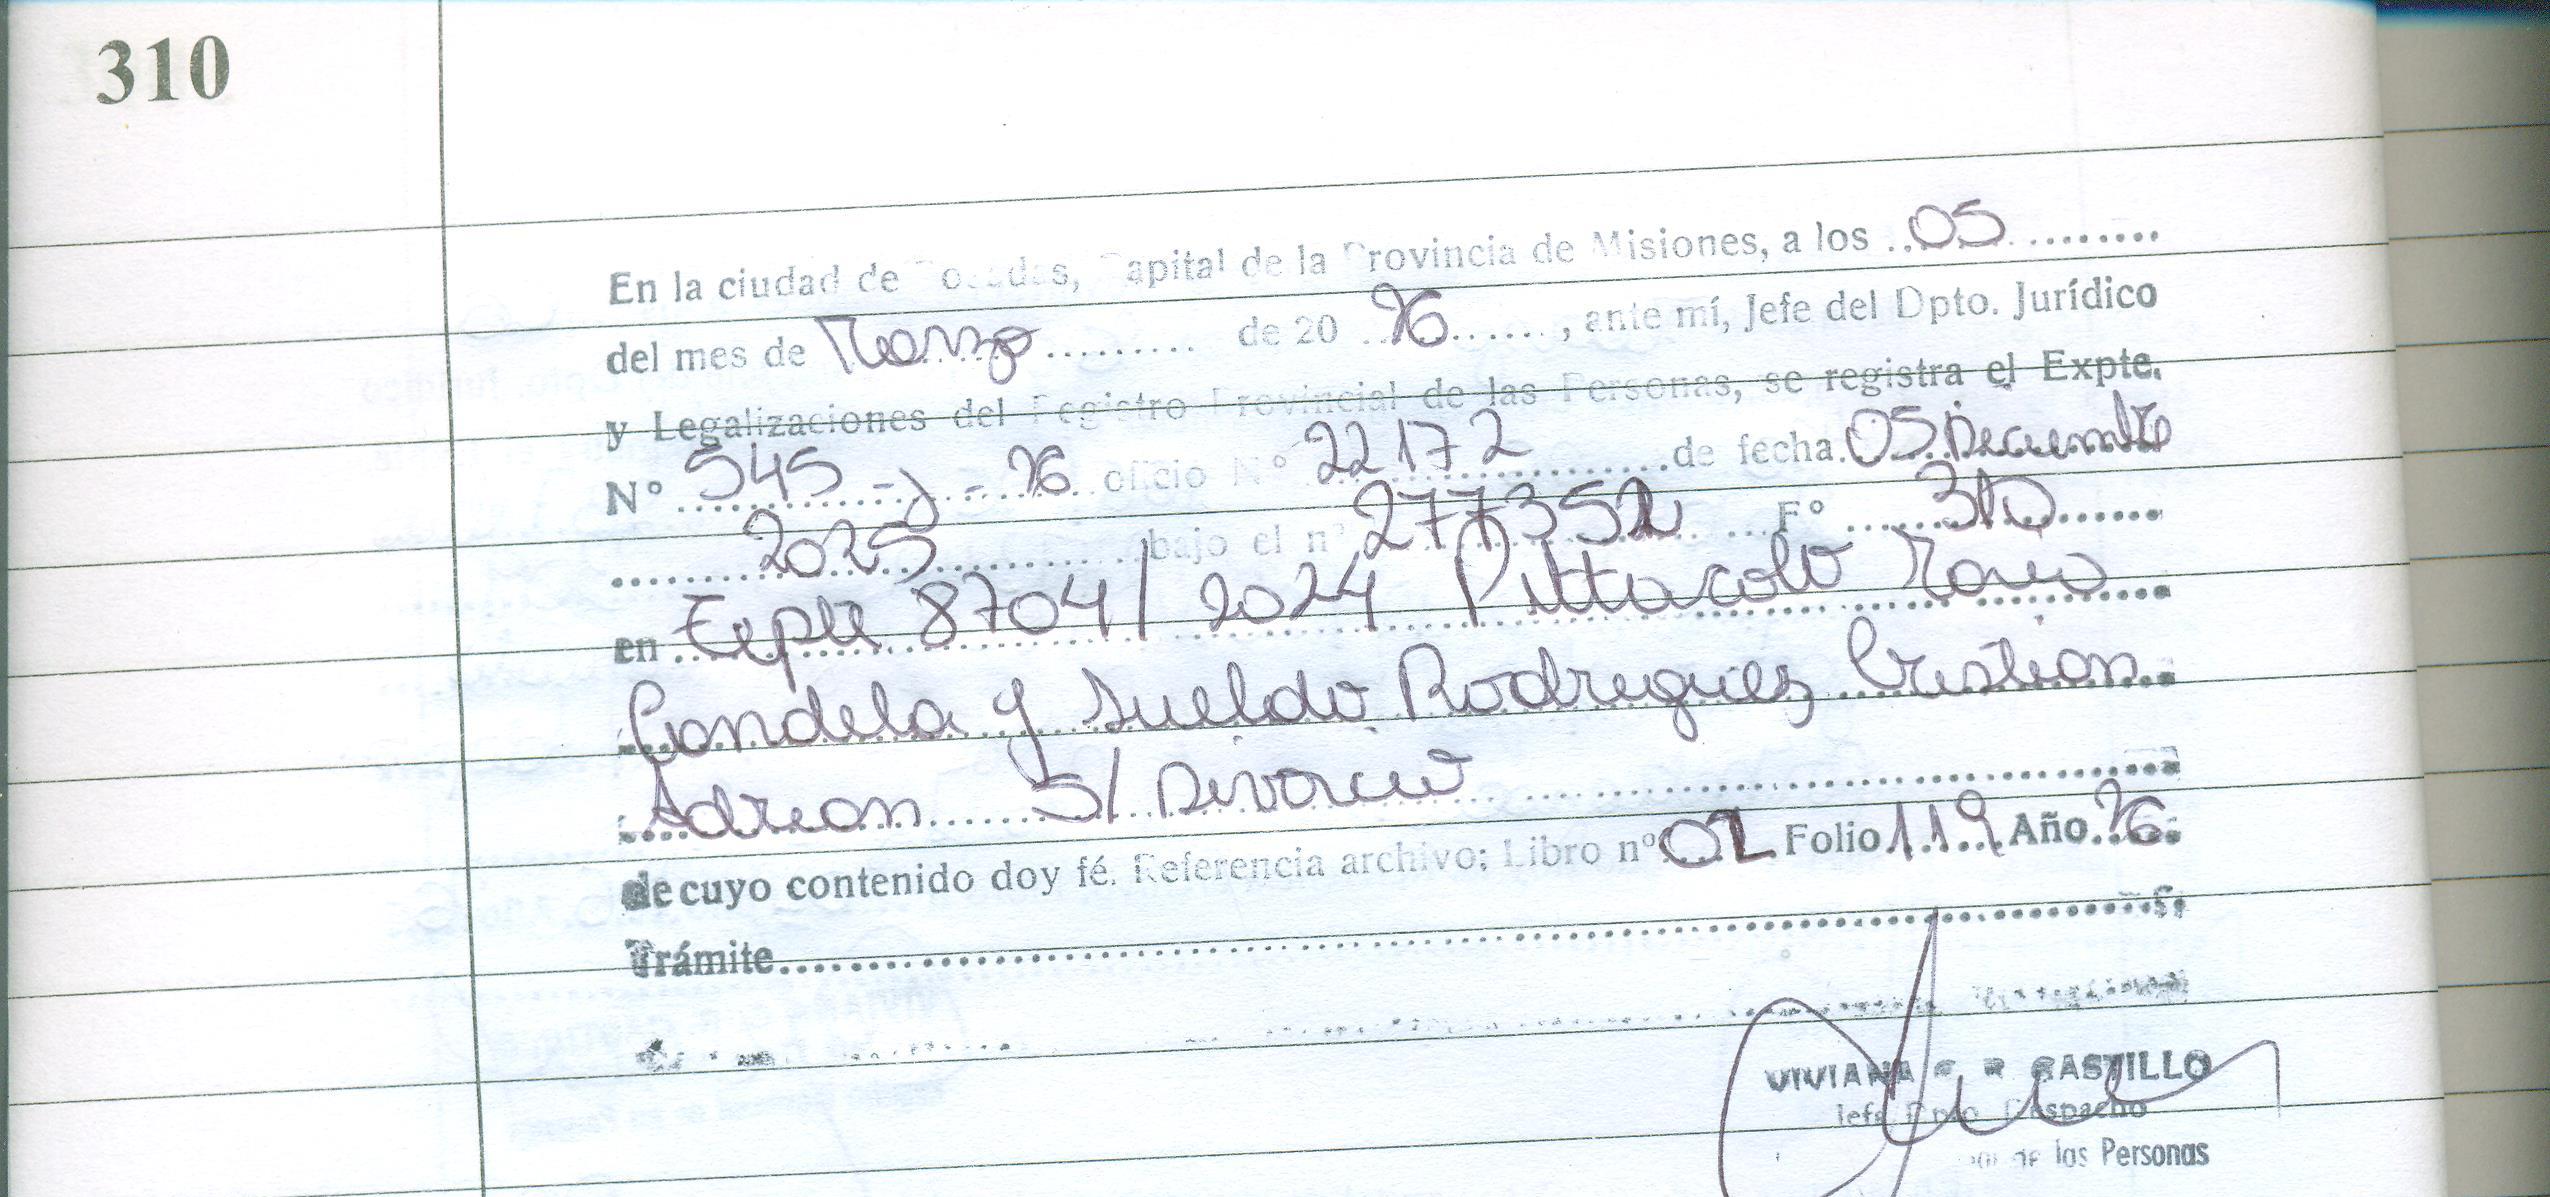 310
En la ciudad de Posadas, Capital de la Provincia de Misiones, a los ..05..........
del mes de Marzo.......... de 20 ..26......., ante mí, Jefe del Dpto. Jurídico
y Legalizaciones del Registro Provincial de las Personas, se registra el Expte.
N° ..545 - J - 26.. oficio N° 22172..........de fecha.05 Diciembre
........2025............bajo el n° 277352 .....F° ......310.......
en .Expte 8704/2024 Pittacolo
Candela y Sueldo Rodriguez Cristian
Adrian S/ Divorcio ....................
de cuyo contenido doy fé. Referencia archivo: Libro n° Folio 119 Año 26.
Trámite....................
VIVIANA CASTILLO
Jefa Dpto. Despacho
de las Personas